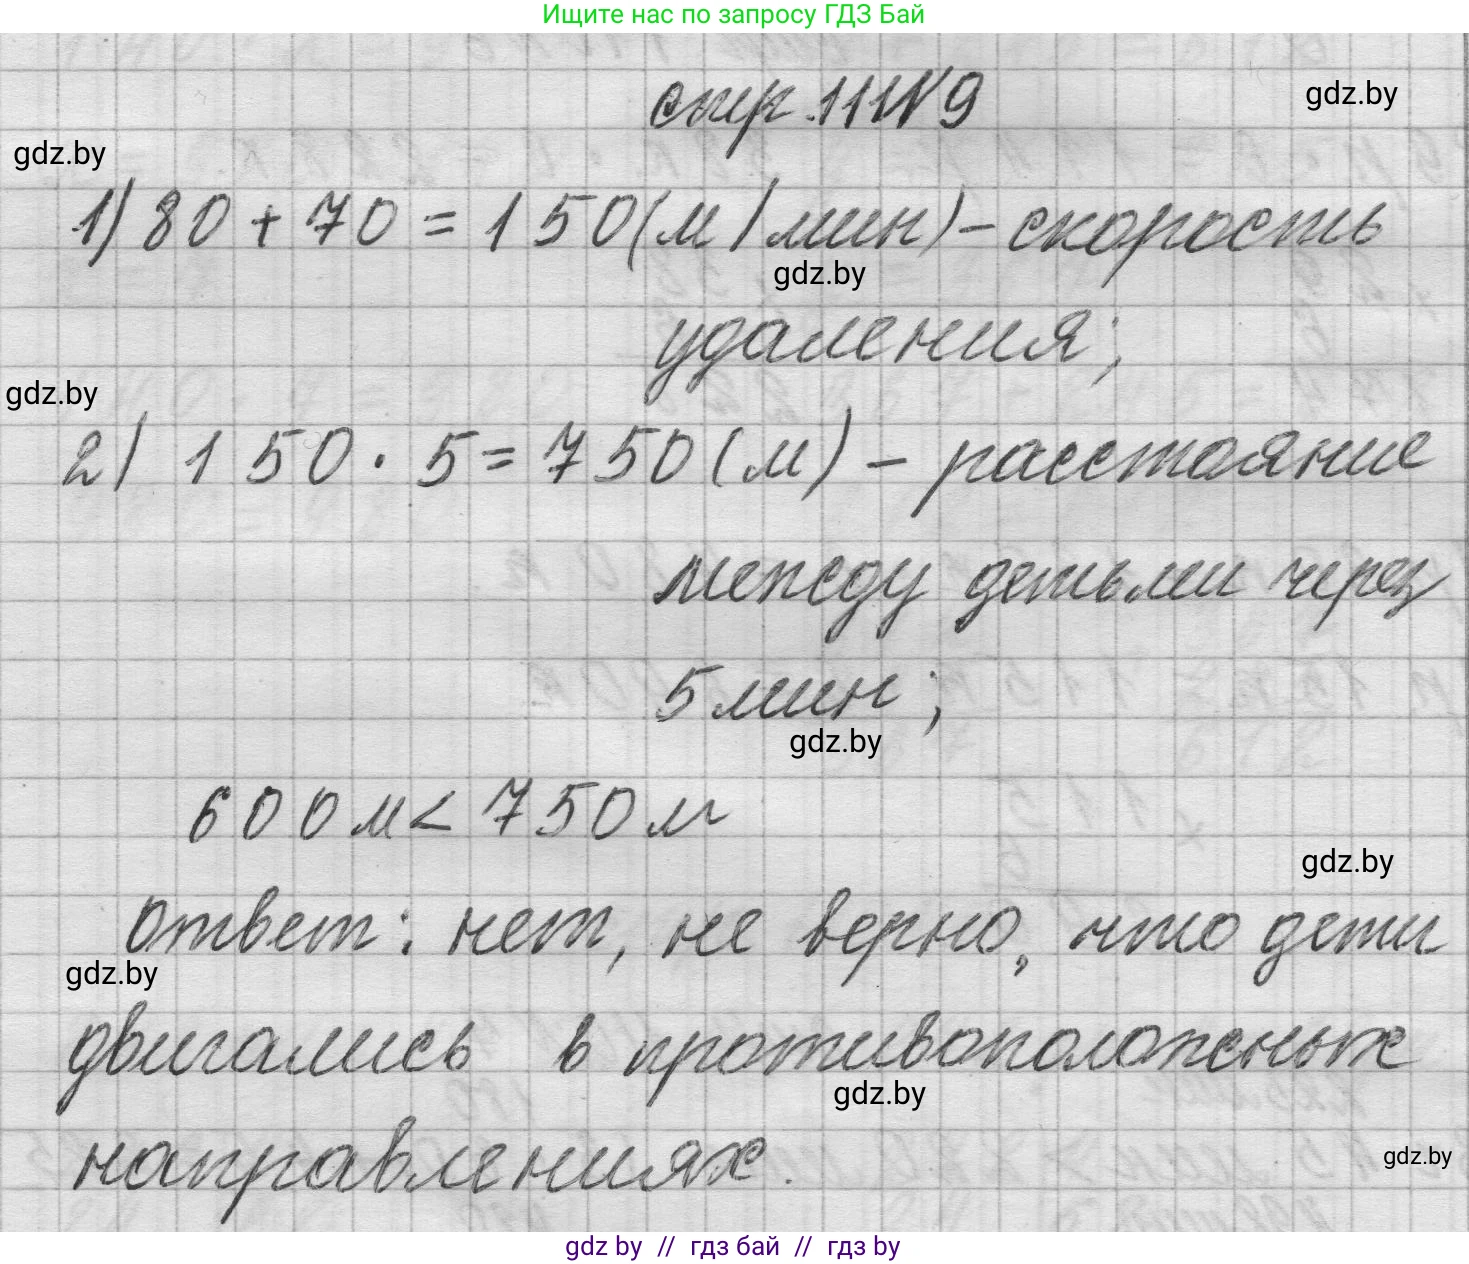 Ищите нас по запросу ГДЗ Бай
стр.111№9
gdz.by
gdz.by
1) 80 + 70 = 150 (м/мин) - скорость
gdz.by
удаления;
gdz.by
2) 150 · 5 = 750 (м) - расстояние
между детьми через
5 мин;
gdz.by
600 м < 750 м
gdz.by
Ответ: нет, не верно, что дети
gdz.by
двигались в противоположных
gdz.by
направлениях.
gdz.by
gdz by // гдз бай // гдз by